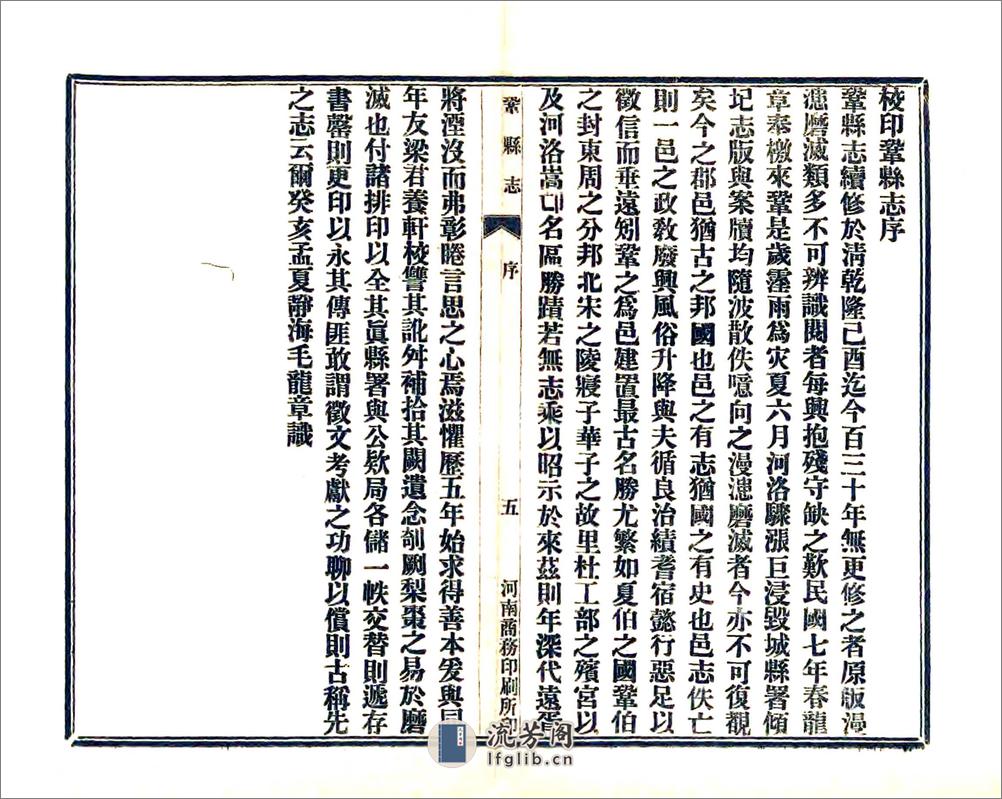 校印鞏縣志序
鞏縣志續修於清乾隆己酉迄今百三十年無更修之者原版漫
漶磨滅類多不可辨識閱者每興抱殘守缺之歎民國七年春龍
章奉檄來鞏是歲霪雨爲灾夏六月河洛驟漲巨浸毀城縣署傾
圮志版與案牘均隨波散佚噫向之漫漶磨滅者今亦不可復觀
矣今之郡邑猶古之邦國也邑之有志猶國之有史也邑志佚亡
則一邑之政教廢興風俗升降與夫循良治績耆宿懿行惡足以
徵信而垂遠矧鞏之爲邑建置最古名勝尤繁如夏伯之國鞏伯
之封東周之分邦北宋之陵寢子華子之故里杜工部之殯宮以
及河洛嵩邙名區勝蹟若無志乘以昭示於來茲則年深代遠胥
鞏縣志
序
五
河南商務印刷所印
將湮沒而弗彰睠言思之心焉滋懼歷五年始求得善本爰與同
年友梁君養軒校讐其訛舛補拾其闕遺念剞劂梨棗之易於磨
滅也付諸排印以全其眞縣署與公欵局各儲一帙交替則遞存
書罄則更印以永其傳匪敢謂徵文考獻之功聊以償則古稱先
之志云爾癸亥孟夏靜海毛龍章識
流芳阁
lfglib.cn